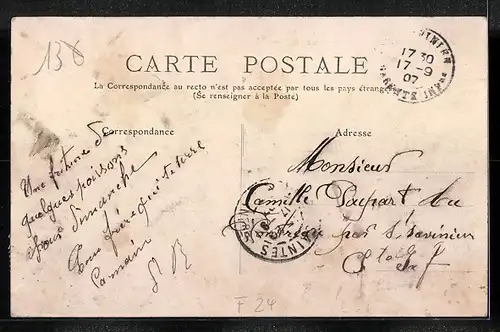 138
CARTE POSTALE
La Correspondance au recto n'est pas acceptée par tous les pays étrangers
(Se renseigner à la Poste)
Correspondance
Adresse
17 30
17-9
07
Une friture de
quelques poissons
pour dimanche
Ton frère qui te serre
la main
Monsieur
Camille
par St Savinien
Ch Inf
F 24